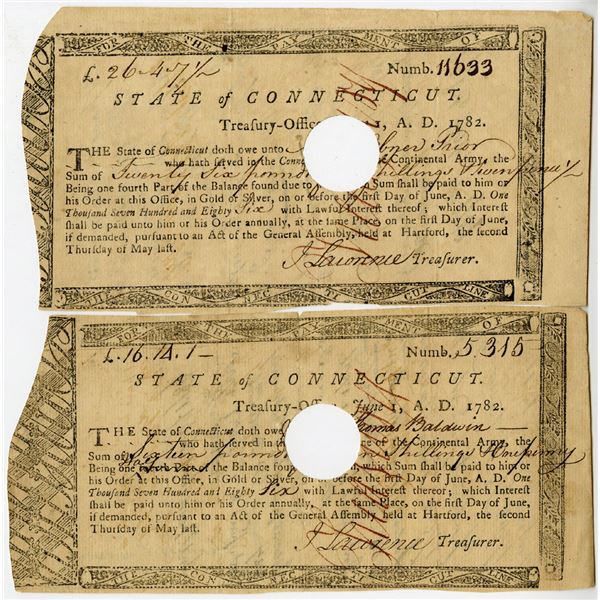 FOR THE PAYMENT OF
£. 26-4-7½ Numb. 11633
STATE of CONNECTICUT.
Treasury-Office 1, A. D. 1782.
THE State of Connecticut doth owe unto Abner Prior
who hath served in the Connec the Continental Army, the
Sum of Twenty Six pounds Shillings & Sevenpence ½
Being one fourth Part of the Balance found due to Sum shall be paid to him or
his Order at this Office, in Gold or Silver, on or before the first Day of June, A. D. One
Thousand Seven Hundred and Eighty Six with Lawful Interest thereof; which Interest
shall be paid unto him or his Order annually, at the same Place, on the first Day of June,
if demanded, pursuant to an Act of the General Assembly, held at Hartford, the second
Thursday of May last.
J Lawrence Treasurer.
THE CONNECTICUT LINE
FOR THE PAYMENT OF
£. 16.14.1- Numb. 5315
STATE of CONNECTICUT.
Treasury-Office June 1, A. D. 1782.
THE State of Connecticut doth owe Thomas Baldwin
who hath served in the Line of the Continental Army, the
Sum of Sixteen pounds Shillings & One penny
Being one fourth Part of the Balance found which Sum shall be paid to him or
his Order at this Office, in Gold or Silver, on or before the first Day of June, A. D. One
Thousand Seven Hundred and Eighty Six with Lawful Interest thereof; which Interest
shall be paid unto him or his Order annually, at the same Place, on the first Day of June,
if demanded, pursuant to an Act of the General Assembly held at Hartford, the second
Thursday of May last.
J Lawrence Treasurer.
THE CONNECTICUT LINE